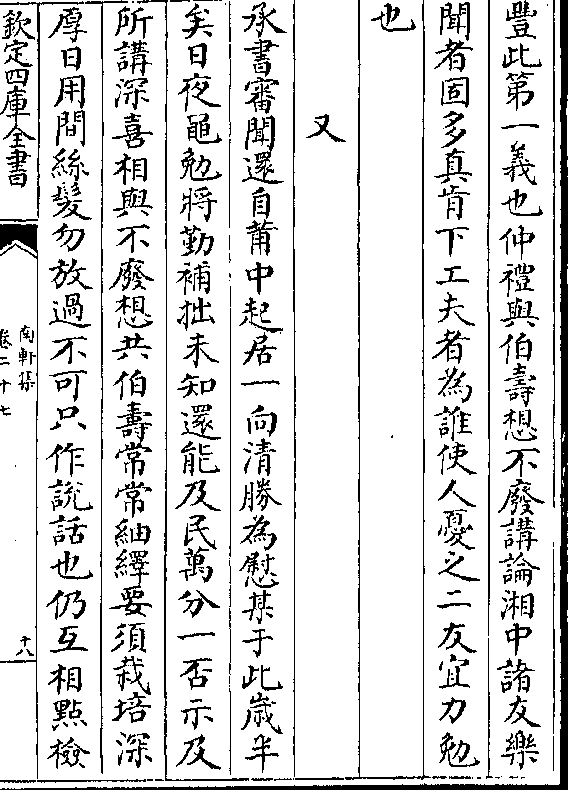 豐此第一義也仲禮與伯壽想不廢講論湘中諸友樂
聞者固多真肯下工夫者為誰使人憂之二友宜力勉
也
又
承書審聞還自莆中起居一向清勝為慰某于此歲半
矣日夜黽勉將勤補拙未知還能及民萬分一否示及
所講深喜相與不廢想共伯壽常常紬繹要須栽培深
厚日用間絲髮勿放過不可只作說話也仍互相點檢
欽定四庫全書
南軒集
卷二十七
十八